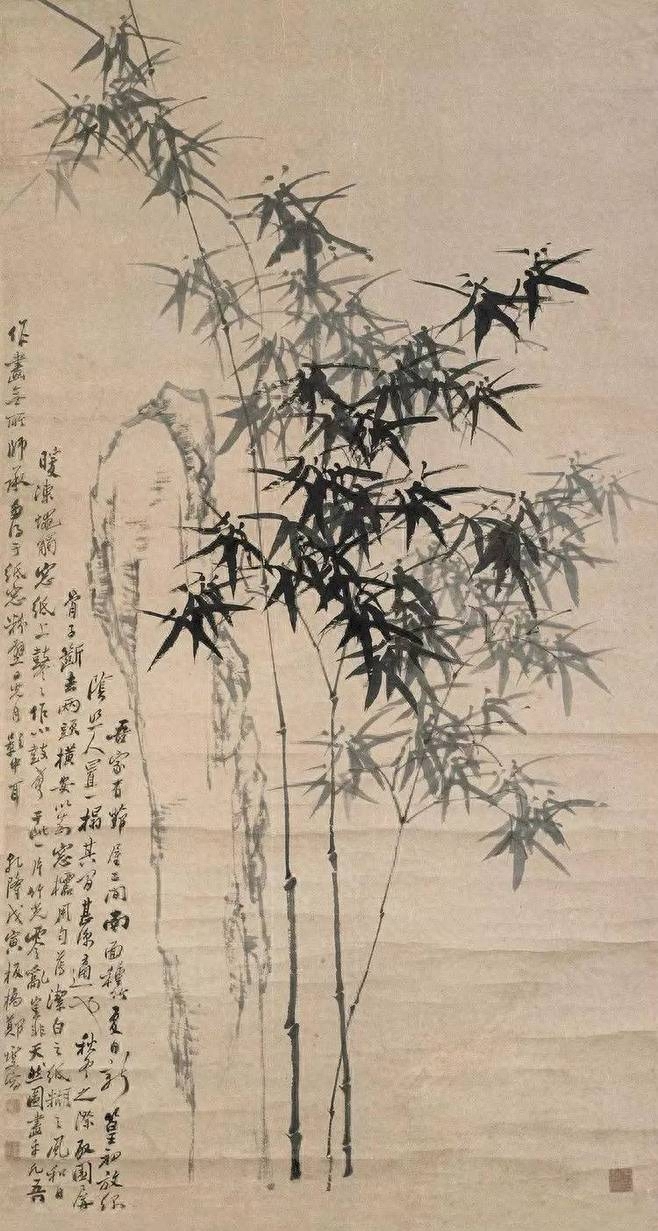 吾家有茅屋二間南面種竹夏日新篁初放綠
陰照人置一榻其中甚涼適也秋冬之際取圍屏
骨子斷去兩頭橫安以為窓櫺用勻薄潔白之紙糊之風和日
暖凍蠅觸窓紙上鼕〻作小鼓聲于時一片竹影零亂豈非天然圖畫乎凡吾
作畫無所師承多得于紙窓粉壁日光月影中耳 乾隆戊寅板橋鄭燮